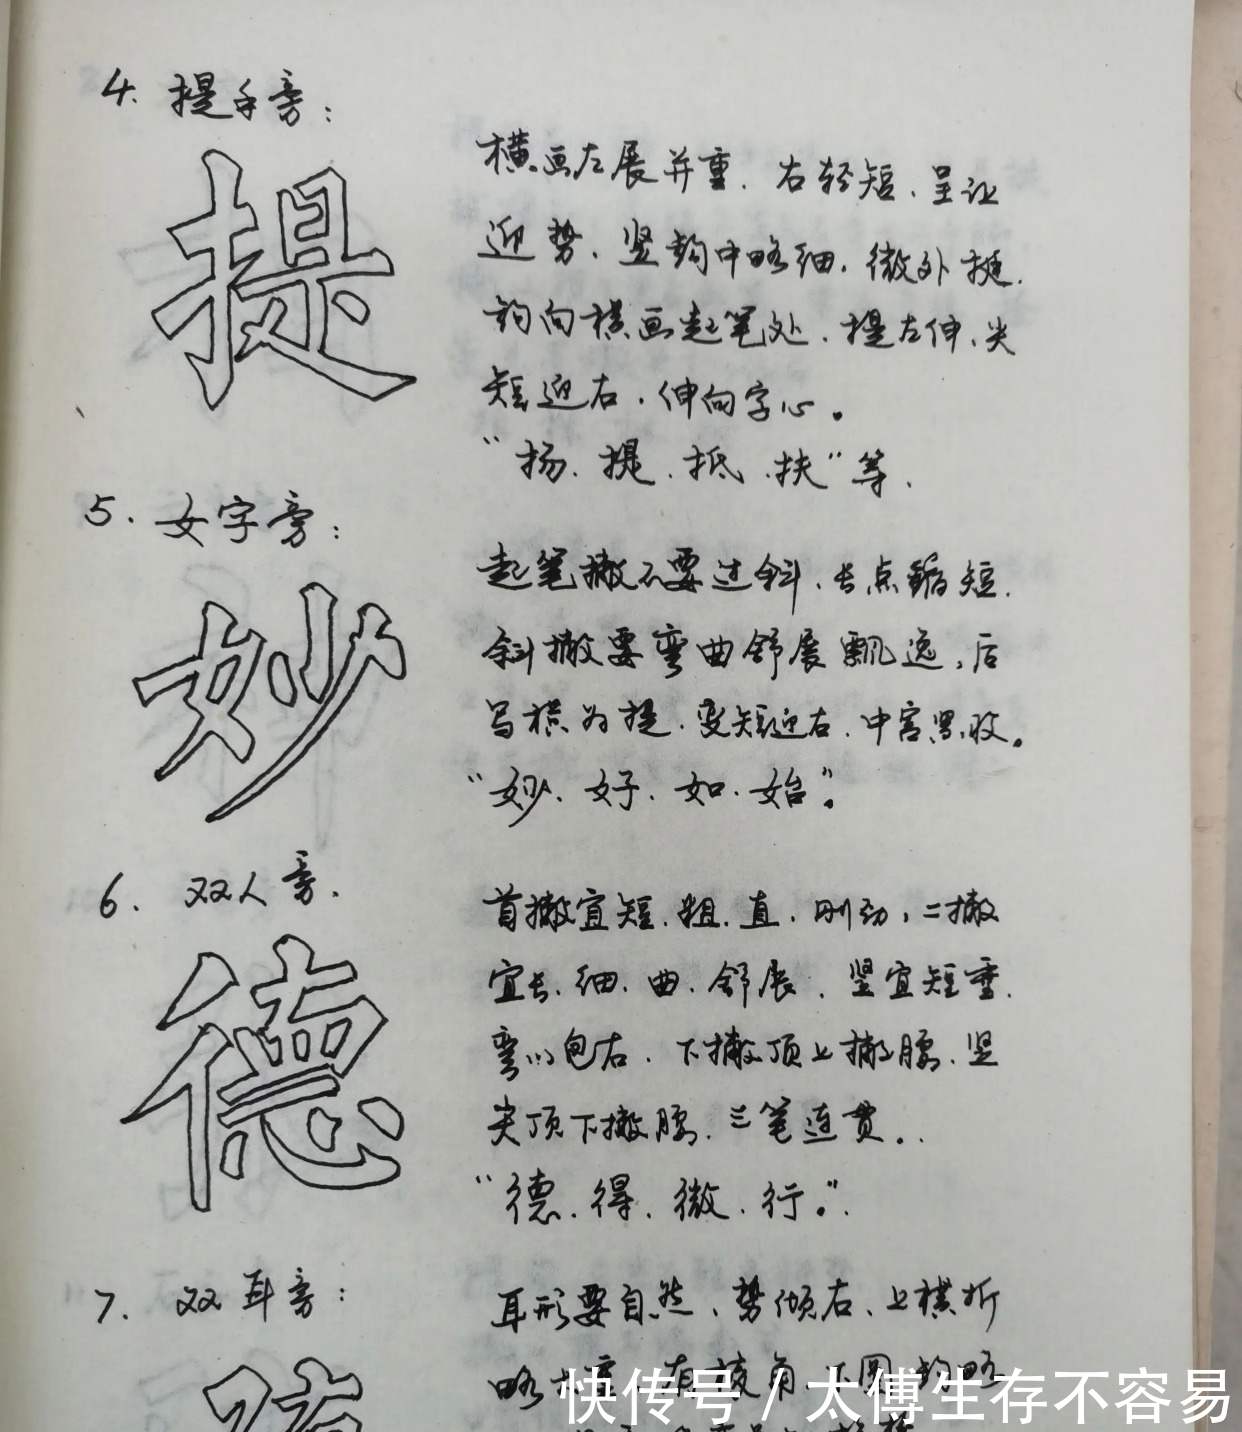 4. 提手旁：
提
横画左展并重．右轻短．呈让
迎势．竖钩中略细．微外挺．
钩向横画起笔处．提左伸、尖
短迎右．伸向字心。
“扬．提．抵．扶”等．
5. 女字旁：
妙
起笔撇不要过斜．长点缩短．
斜撇要弯曲舒展飘逸，后
写横为提．变短迎右．中宫紧收。
“妙．好．如．始”。
6. 双人旁．
德
首撇宜短．粗．直．刚劲，二撇
宜长．细．曲．舒展．竖宜短重．
弯以包右．下撇顶上撇腰．竖
尖顶下撇腰．三笔连贯。
“德．得．微．行。”
7. 双耳旁：
耳形要自然、势倾右、上横折
略 有棱角 下圆钩略
快传号 / 太傅生存不容易